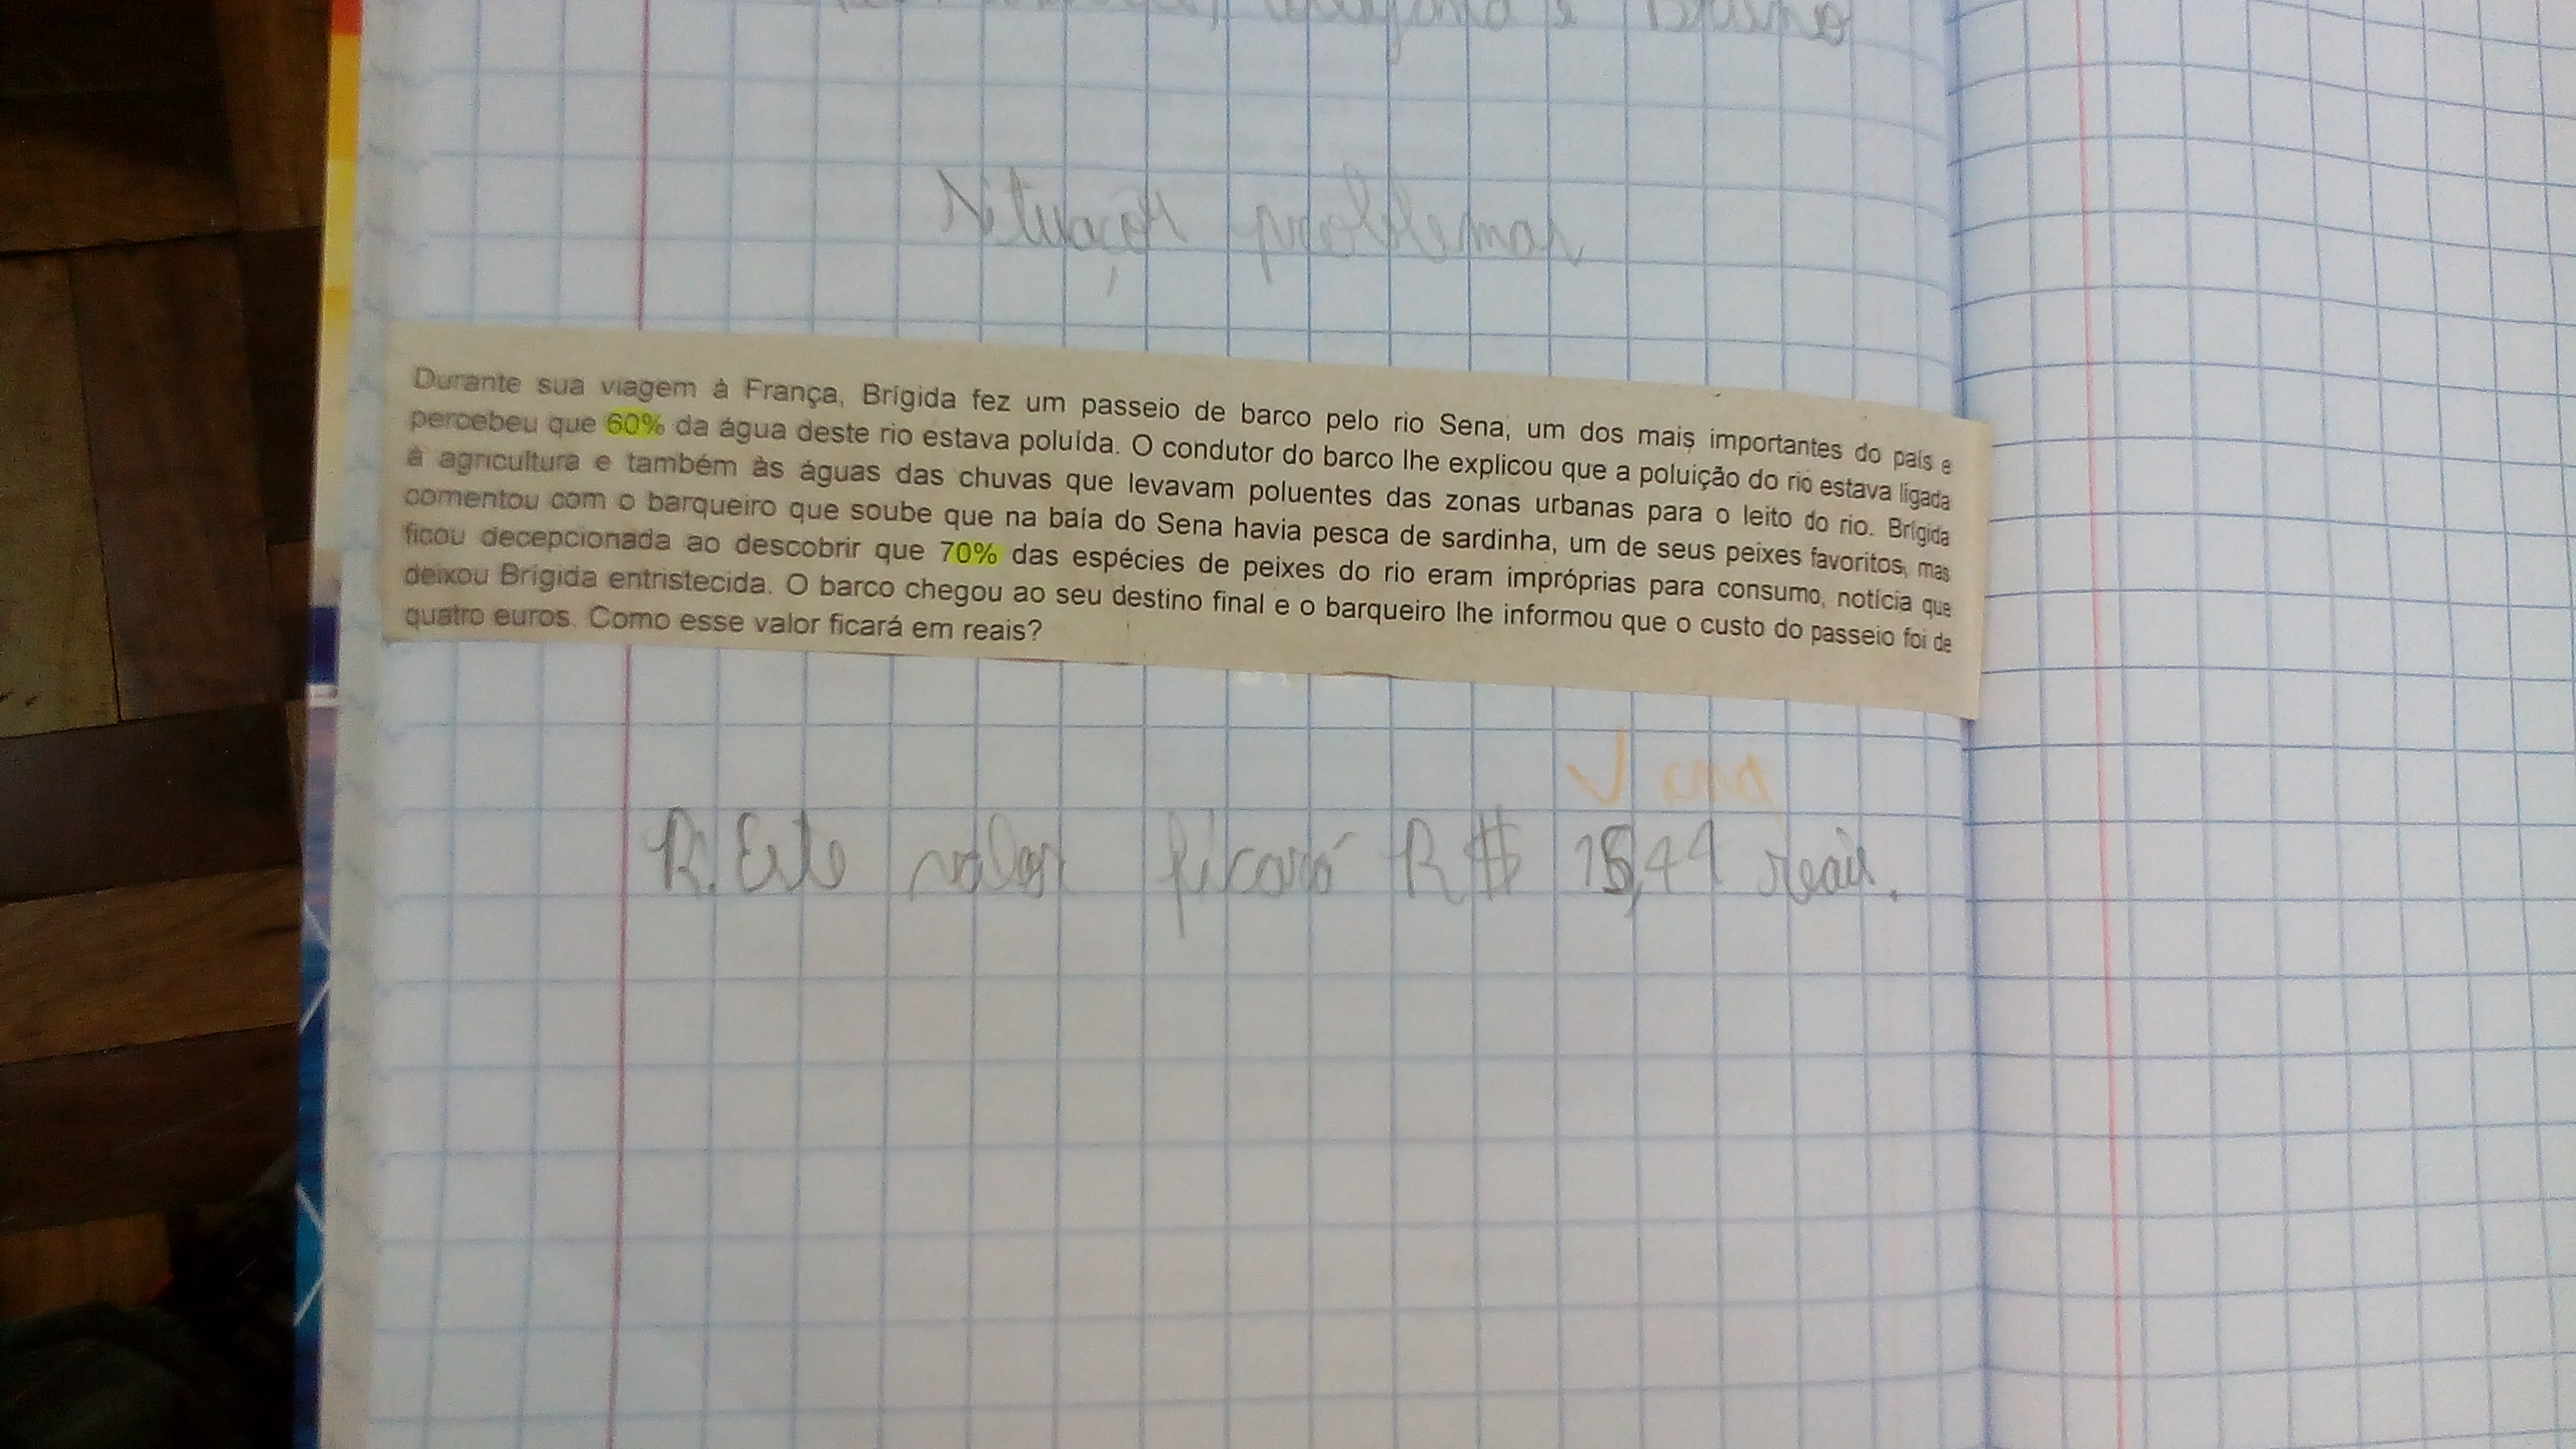 e Bruno
Situações problemas
Durante sua viagem à França, Brígida fez um passeio de barco pelo rio Sena, um dos mais importantes do país e
percebeu que 60% da água deste rio estava poluída. O condutor do barco lhe explicou que a poluição do rio estava ligada
à agricultura e também às águas das chuvas que levavam poluentes das zonas urbanas para o leito do rio. Brígida
comentou com o barqueiro que soube que na baía do Sena havia pesca de sardinha, um de seus peixes favoritos, mas
ficou decepcionada ao descobrir que 70% das espécies de peixes do rio eram impróprias para consumo, notícia que
deixou Brígida entristecida. O barco chegou ao seu destino final e o barqueiro lhe informou que o custo do passeio foi de
quatro euros. Como esse valor ficará em reais?
R. Este valor ficará R$ 15,44 reais.